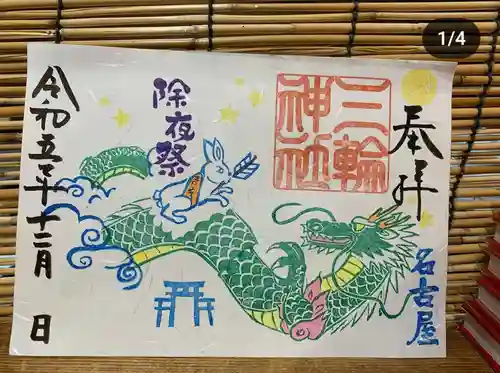 1/4
奉拝
名古屋
三輪
神社
除夜祭
令和五年十二月 日